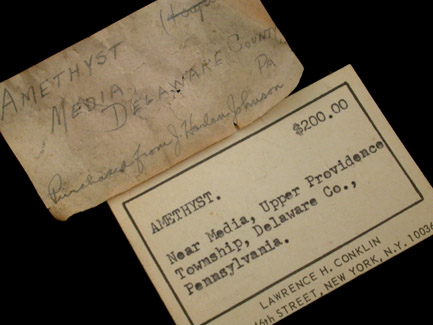 AMETHYST
MEDIA
DELAWARE COUNTY
Pa
Purchased from J Harlan Johnson
$200.00
AMETHYST.
Near Media, Upper Providence
Township, Delaware Co.,
Pennsylvania.
LAWRENCE H. CONKLIN
STREET, NEW YORK, N.Y. 10036